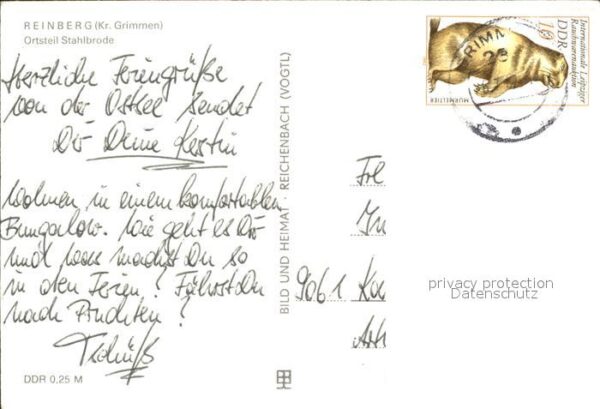 REINBERG (Kr. Grimmen)
Ortsteil Stahlbrode
Herzliche Feriengrüße
von der Ostsee sendet
Dir Deine Kerstin
Wohnen in einem komfortablen
Bungalow. Wie geht es Dir
und was machst Du so
in den Ferien? Fährst Du
nach
Tschüß
DDR 0,25 M
BILD UND HEIMAT · REICHENBACH (VOGTL)
10
DDR
Internationale Leipziger
Rauchwarenauktion
MURMELTIER
Frl
9061 Ka
privacy protection
Datenschutz